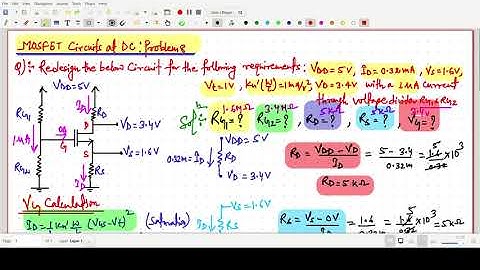 MOSFET Circuits at DC: Problems
Q) :- Redesign the below Circuit for the following requirements: VDD = 5V, ID = 0.32mA, VS = 1.6V,
Vt = 1V, Kn'(W/L) = 1mA/V², VD = 3.4V with a 1MA current
through voltage divider RG1 & RG2
VDD = 5V
RG1
1MA
RG2
ID
RD
D
0A
G
S
VD = 3.4V
VS = 1.6V
ID
RS
1.6MΩ 3.4MΩ 5KΩ 5KΩ 3.4V
RG1 = ? RG2 = ? RD = ? RS = ? VG = ?
0.32m = ID
VDD = 5V
RD
VD = 3.4V
RD = VDD - VD / ID = 5 - 3.4 / 0.32m = 1.6 / 0.32 × 10³
RD = 5KΩ
VG Calculation
ID = ½ Kn' W/L (VGS - Vt)² (Saturation)
VS = 1.6V
RS
RS = VS - 0V / ID = 1.6 / 0.32m × 10³ = 5KΩ